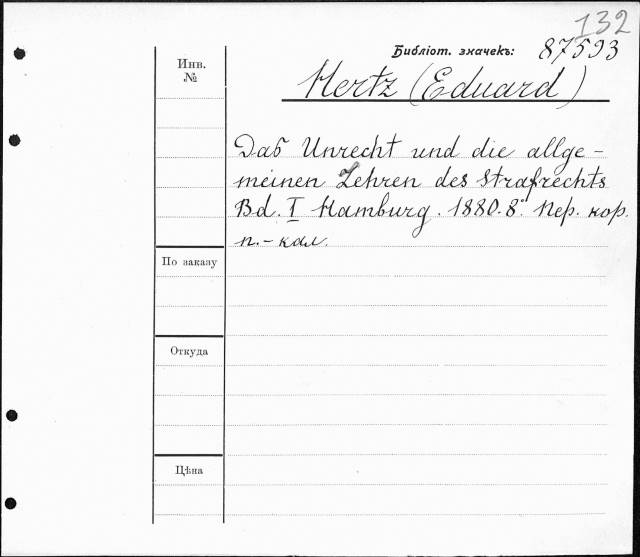 132
Библіот. значекъ: 87593
Инв.
№
Hertz (Eduard)
Das Unrecht und die allge-
meinen Lehren des Strafrechts
Bd. I Hamburg. 1880. 8º. Пер. кор.
п.-кал.
По заказу
Откуда
Цѣна